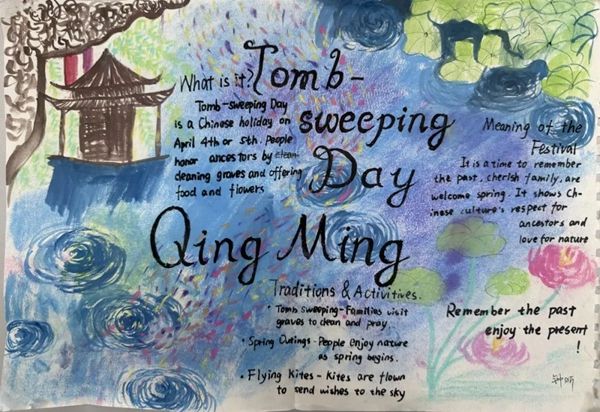 What is it?
Tomb-sweeping Day
is a Chinese holiday on
April 4th or 5th. People
honor ancestors by clean
cleaning graves and offering
food and flowers
Tomb-
sweeping
Day
Qing Ming
Meaning of the
Festival
It is a time to remember
the past, cherish family, are
welcome spring. It shows Ch-
inese culture's respect for
ancestors and
love for nature
Traditions & Activitives.
• Tomb sweeping-Families visit
graves to clean and pray.
• Spring Outings-People enjoy nature
as spring begins.
• Flying Kites - Kites are flown
to send wishes to the sky
Remember the past
enjoy the present
!